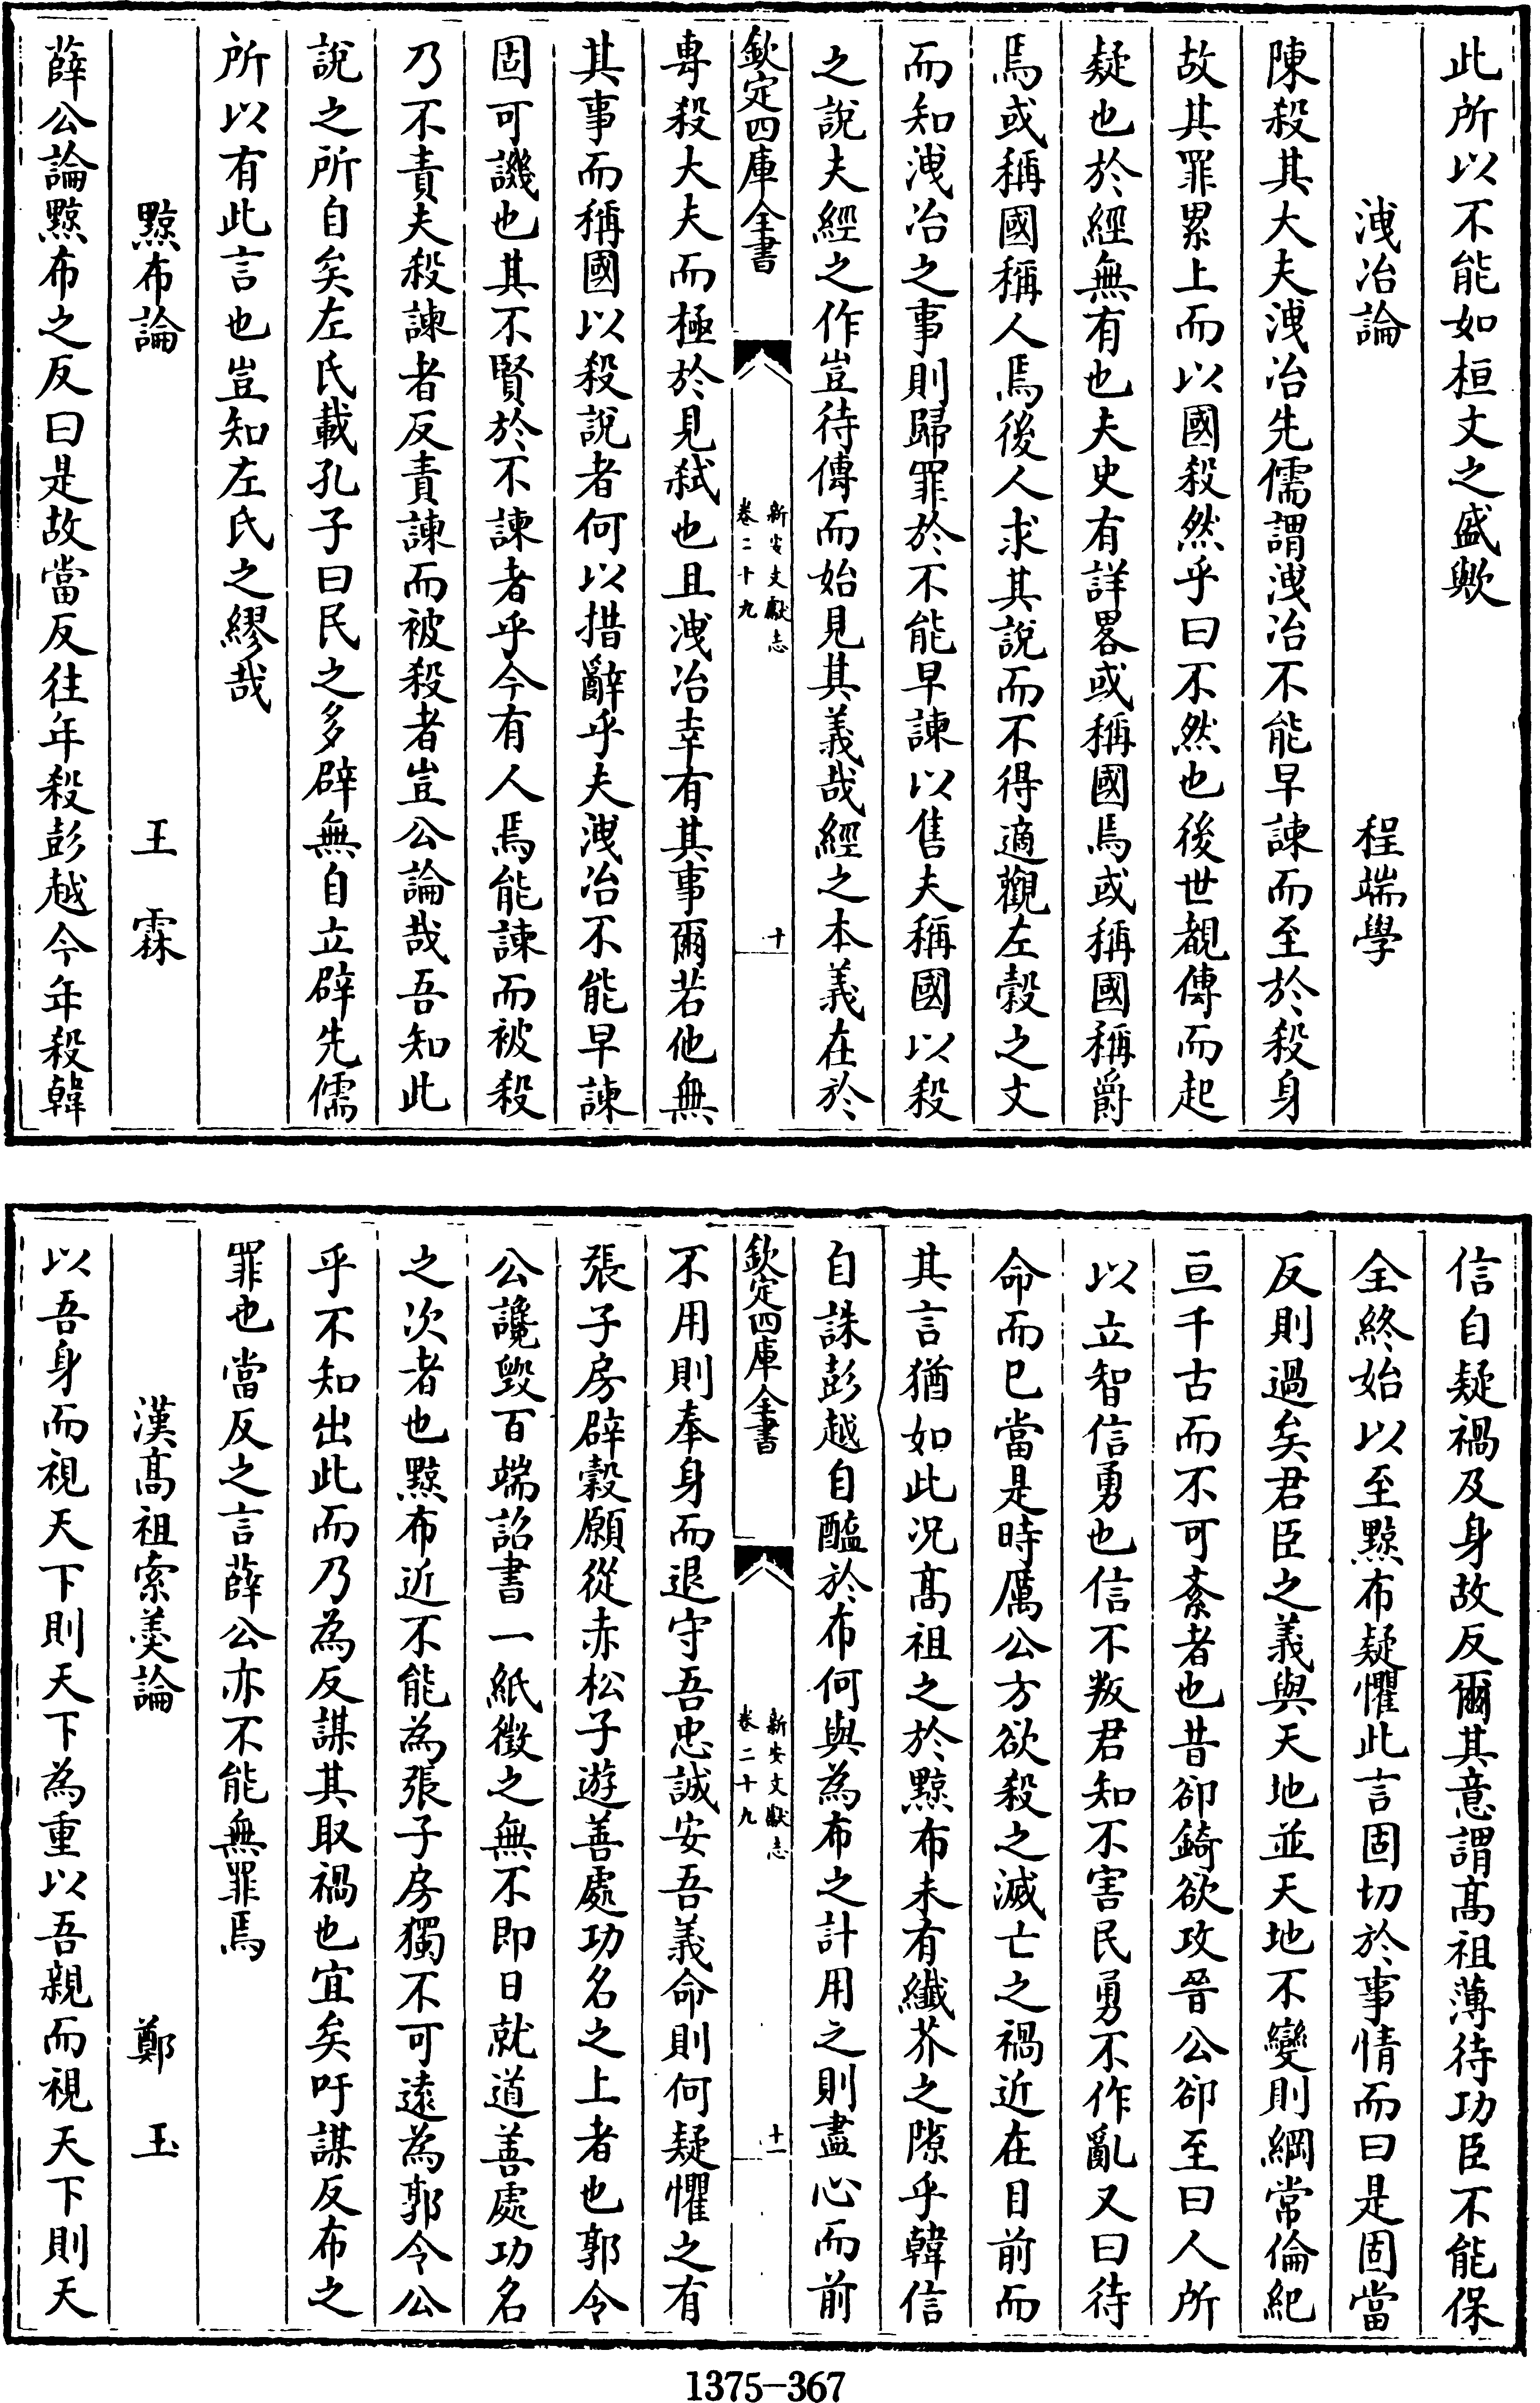 此所以不能如桓文之盛歟
洩冶論　程端學
陳殺其大夫洩冶先儒謂洩冶不能早諫而至於殺身
故其罪累上而以國殺然乎曰不然也後世覩傳而起
疑也於經無有也夫史有詳畧或稱國焉或稱國稱爵
焉或稱國稱人焉後人求其說而不得適觀左糓之文
而知洩冶之事則歸罪於不能早諫以售夫稱國以殺
之說夫經之作豈待傳而始見其義哉經之本義在於
欽定四庫全書
新安文獻志
卷二十九
十
專殺大夫而極於見弑也且洩冶幸有其事爾若他無
其事而稱國以殺說者何以措辭乎夫洩冶不能早諫
固可譏也其不賢於不諫者乎今有人焉能諫而被殺
乃不責夫殺諫者反責諫而被殺者豈公論哉吾知此
說之所自矣左氏載孔子曰民之多辟無自立辟先儒
所以有此言也豈知左氏之繆哉
黥布論　王霖
薛公論黥布之反曰是故當反往年殺彭越今年殺韓
信自疑禍及身故反爾其意謂髙祖薄待功臣不能保
全終始以至黥布疑懼此言固切於事情而曰是固當
反則過矣君臣之義與天地並天地不變則綱常倫紀
亘千古而不可紊者也昔郤錡欲攻晉公郤至曰人所
以立智信勇也信不叛君知不害民勇不作亂又曰待
命而已當是時厲公方欲殺之滅亡之禍近在目前而
其言猶如此况髙祖之於黥布未有纖芥之隙乎韓信
自誅彭越自醢於布何與為布之計用之則盡心而前
欽定四庫全書
新安文獻志
卷二十九
十一
不用則奉身而退守吾忠誠安吾義命則何疑懼之有
張子房辟糓願從赤松子遊善處功名之上者也郭令
公讒毀百端詔書一紙徵之無不即日就道善處功名
之次者也黥布近不能為張子房獨不可遠為郭令公
乎不知出此而乃為反謀其取禍也宜矣吁謀反布之
罪也當反之言薛公亦不能無罪焉
漢髙祖索羮論　鄭玉
以吾身而視天下則天下為重以吾親而視天下則天
1375-367